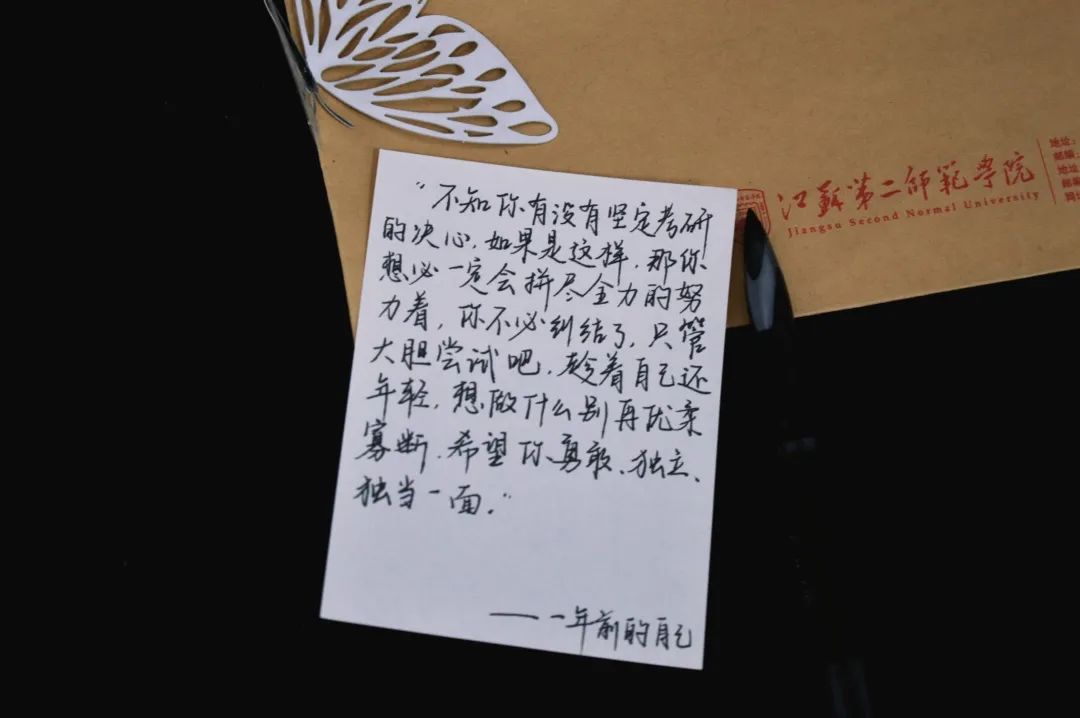 “不知你有没有坚定考研
的决心,如果是这样,那你
想必一定会拼尽全力的努
力着,你不必纠结了,只管
大胆尝试吧,趁着自己还
年轻,想做什么别再优柔
寡断,希望你勇敢、独立、
独当一面。”
——一年前的自己
江蘇第二師範學院
Jiangsu Second Normal University
地址:
邮编:
地址:
邮编: